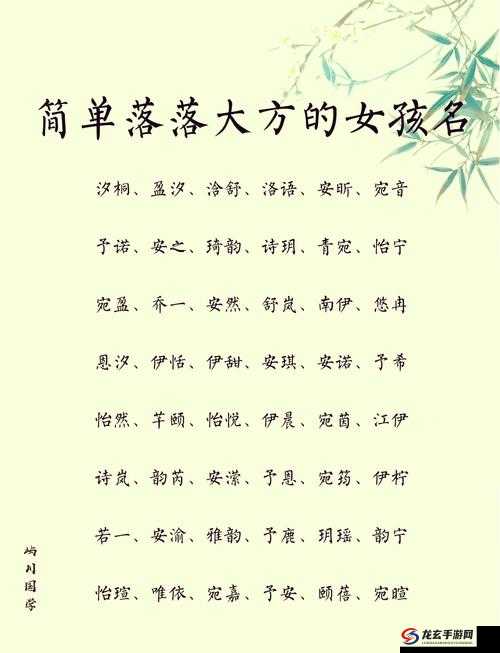 简单落落大方的女孩名
汐桐、盈汐、洽舒、洛语、安昕、宛音
予诺、安之、琦韵、诗玥、青宛、怡宁
宛盈、乔一、安然、舒岚、南伊、悠冉
恩汐、伊恬、伊甜、安琪、安诺、予希
怡然、芊颐、怡悦、伊晨、宛茵、江伊
诗岚、韵芮、安潆、予恩、宛筠、伊柠
若一、安渝、雅韵、予鹿、玥瑶、韵宁
怡瑄、唯依、宛嘉、予安、颐蓓、宛暄
屿川国学
龙玄手游网